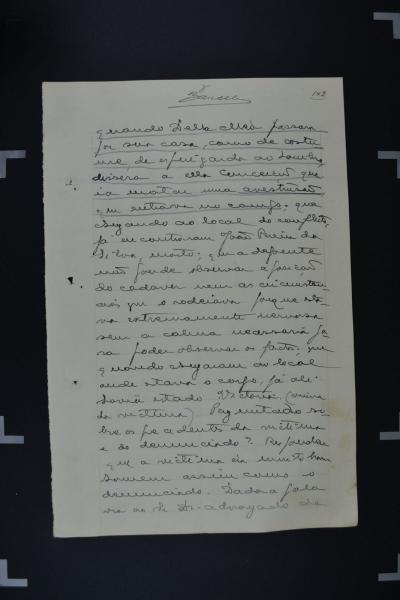 142
quando Della Méa passara
por sua casa, como de costu
me, de espingarda ao hombro,
dissera a ella Conceição que
ia matar uma avestruz
que estava no campo; que
chegando ao local do conflicto,
já encontraram João
Silva, morto; que a depoente
não poude observar a posição
do cadaver nem as circumstan
cias que o rodeiava porque sta
va extremamente nervosa
sem a calma necessaria pa
ra poder observar os factos; que
quando chegaram ao local
onde stava o corpo, já ali
havia estado Victoria, (viuva
da victima) Perguntado so
bre os precedentes da victima
e do denunciado? Respondeu
que a victima era muito bom
homem assim como o
denunciado. Dada a pala
vra ao Dr. advogado da